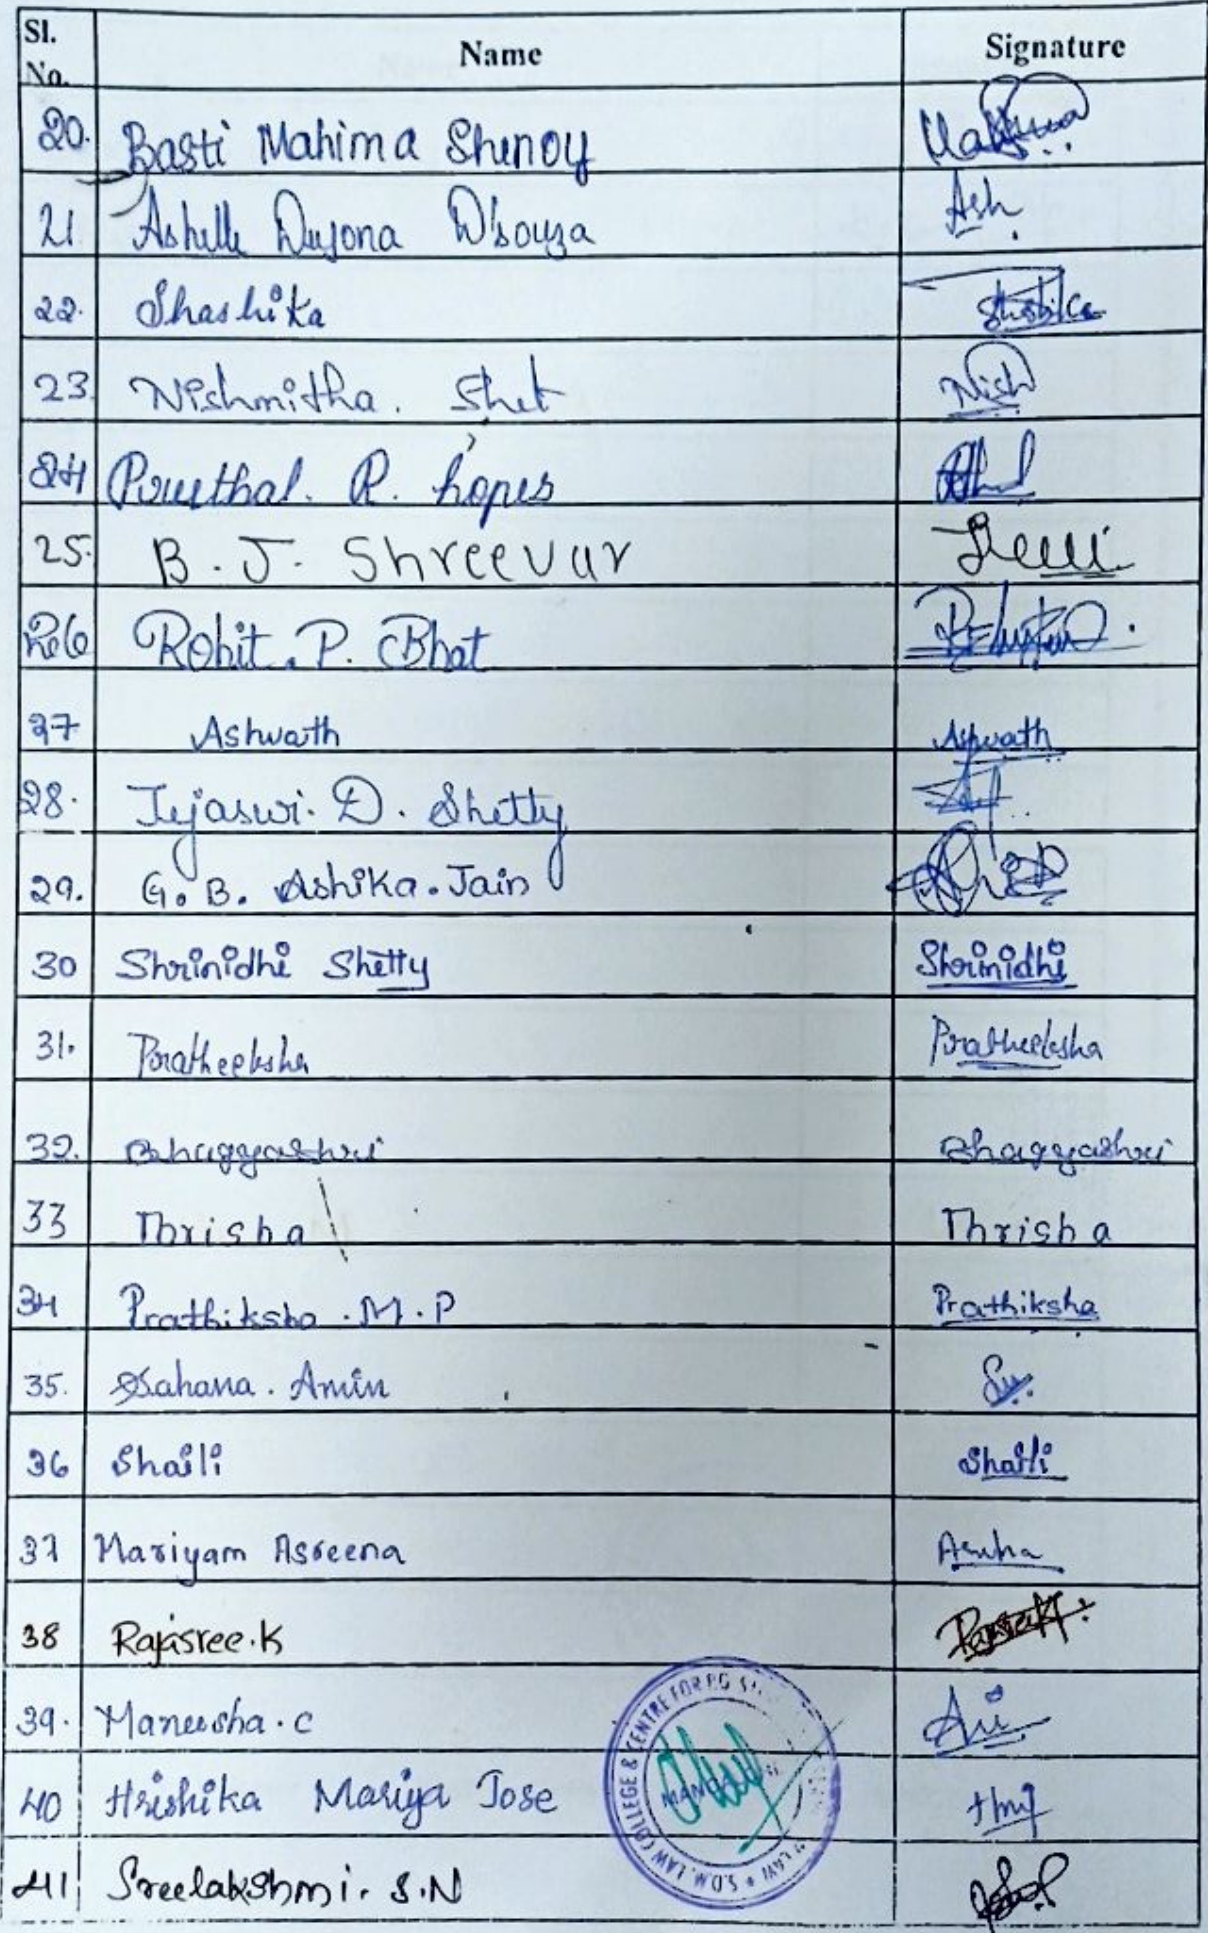 Sl. No. Name Signature
20. Basti Mahima Shenoy
21 Ashelle Dujona D'souza Ash
22. Shashika Shashika
23. Nishmitha. Shet Nish
24 R. Lopes
25. B. J. Shreevar
26 Rohit. P. Bhat
27 Ashwath Ashwath
28. Tejaswi. D. Shetty
29. G. B. Ashika. Jain
30 Shrinidhi Shetty Shrinidhi
31. Pratheeksha Pratheeksha
32. Bhagyashri Bhagyashri
33 Thrisha Thrisha
34 Prathiksha . M. P Prathiksha
35. Sahana . Amin
36 Shaili Shaili
37 Mariyam Asreena
38 Rajasree. K
39. Maneesha . C
40 Hrishika Mariya Jose
41 Sreelakshmi. S. N
S.D.M. LAW COLLEGE & CENTRE FOR P.G.